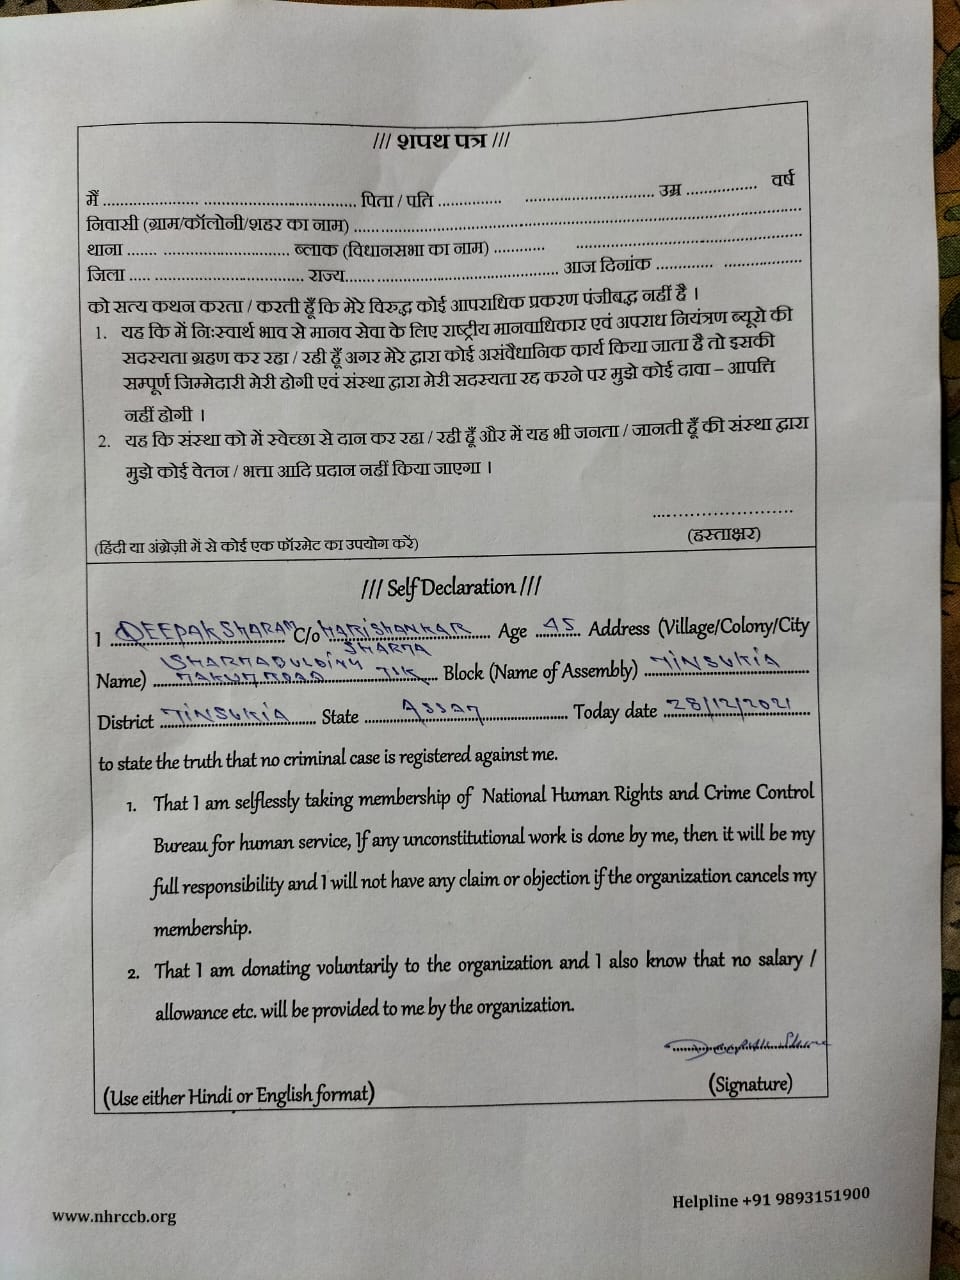 /// शपथ पत्र ///
मैं .................... पिता / पति .................... उम्र .................... वर्ष
निवासी (ग्राम/कॉलोनी/शहर का नाम) ....................
थाना .................... ब्लाक (विधानसभा का नाम) ....................
जिला .................... राज्य.................... आज दिनांक ....................
को सत्य कथन करता / करती हूँ कि मेरे विरुद्ध कोई आपराधिक प्रकरण पंजीबद्ध नहीं है ।
1. यह कि में नि:स्वार्थ भाव से मानव सेवा के लिए राष्ट्रीय मानवाधिकार एवं अपराध नियंत्रण ब्यूरो की
सदस्यता ग्रहण कर रहा / रही हूँ अगर मेरे द्वारा कोई असंवैधानिक कार्य किया जाता है तो इसकी
सम्पूर्ण जिम्मेदारी मेरी होगी एवं संस्था द्वारा मेरी सदस्यता रद्द करने पर मुझे कोई दावा – आपत्ति
नहीं होगी ।
2. यह कि संस्था को में स्वेच्छा से दान कर रहा / रही हूँ और में यह भी जनता / जानती हूँ की संस्था द्वारा
मुझे कोई वेतन / भत्ता आदि प्रदान नहीं किया जाएगा ।
(हिंदी या अंग्रेज़ी में से कोई एक फॉरमेट का उपयोग करें) (हस्ताक्षर)
/// Self Declaration ///
I DEEPAK SHARAM C/o HARISHANKAR SHARMA Age 45 Address (Village/Colony/City
Name) SHARMA BULDING MAKUM ROAD TSK Block (Name of Assembly) TINSUKIA
District TINSUKIA State ASSAM Today date 28/12/2021
to state the truth that no criminal case is registered against me.
1. That I am selflessly taking membership of National Human Rights and Crime Control
Bureau for human service, If any unconstitutional work is done by me, then it will be my
full responsibility and I will not have any claim or objection if the organization cancels my
membership.
2. That I am donating voluntarily to the organization and I also know that no salary /
allowance etc. will be provided to me by the organization.
(Use either Hindi or English format) (Signature)
www.nhrccb.org Helpline +91 9893151900